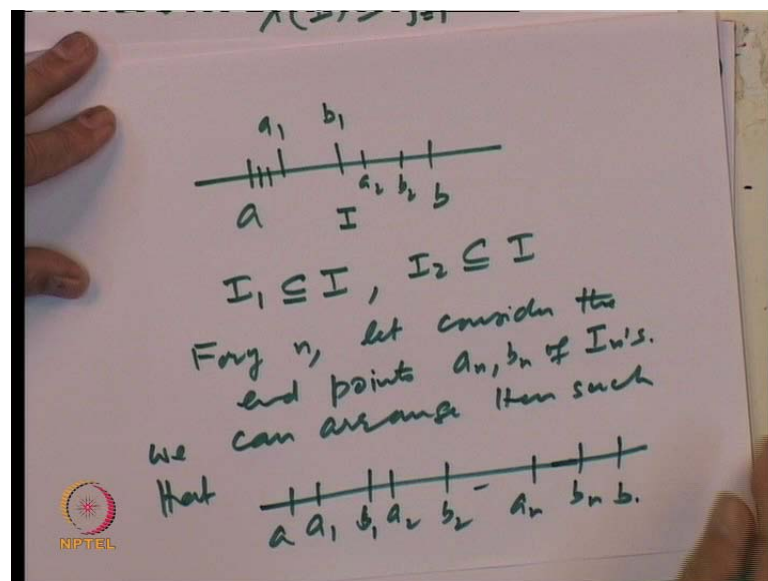 λ(I) ≥ j=1
a₁ b₁
a I a₂ b₂ b
I₁ ⊆ I, I₂ ⊆ I
n, let consider the
end points aₙ, bₙ of Iₙ's.
we can arrange them such
that a a₁ b₁ a₂ b₂ – aₙ bₙ b.
NPTEL